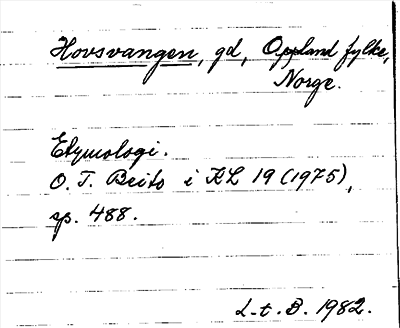 Hovsvangen, gd, Oppland fylke,
Norge.
Etymologi.
O. T. Beito i KL 19 (1975),
sp. 488.
L-t. B. 1982.